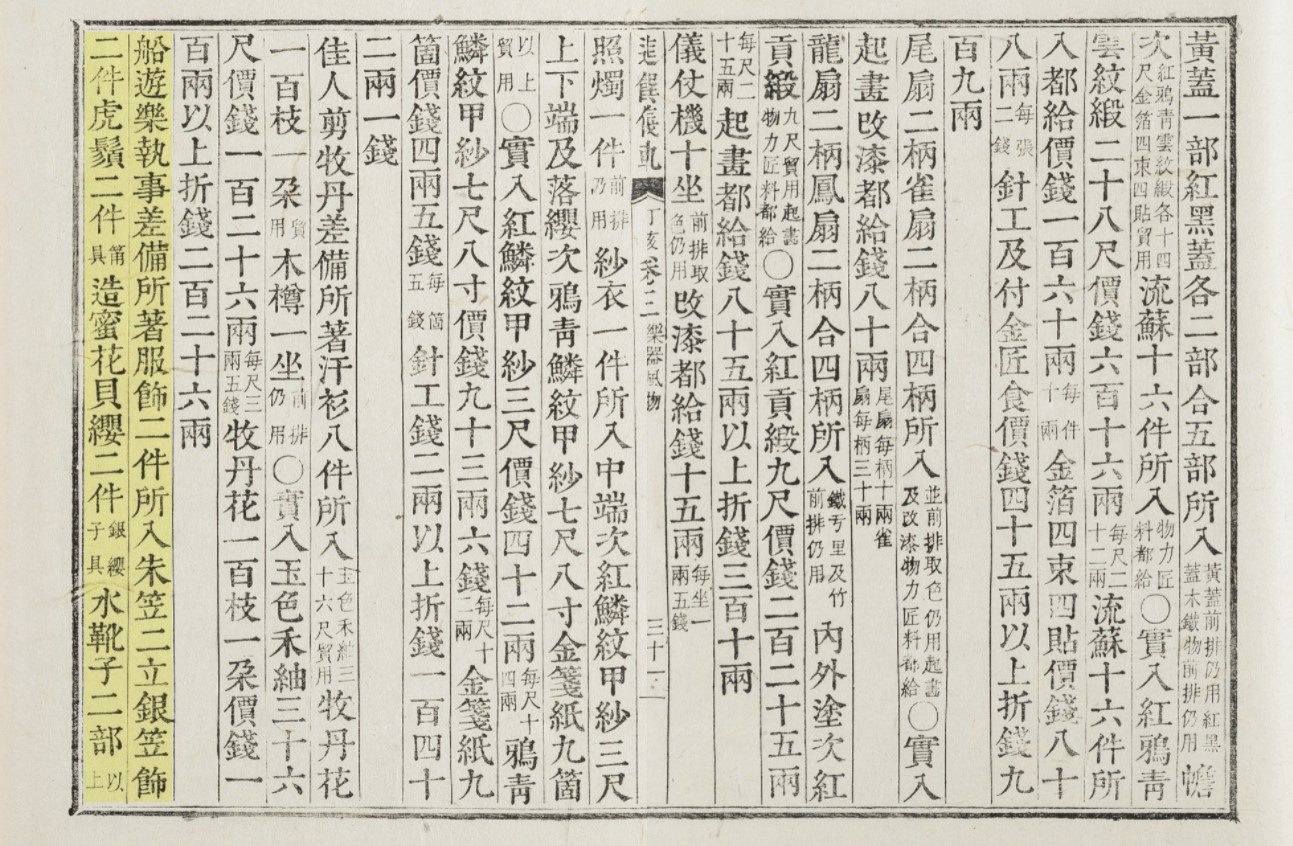 黃蓋一部紅黑蓋各二部合五部所入黃蓋前排仍用紅黑蓋木鐵物前排仍用幨
次紅鴉靑雲紋緞各十四尺金箔四束四貼貿用流蘇十六件所入物力匠料都給〇實入紅鴉靑
雲紋緞二十八尺價錢六百十六兩每尺二十二兩流蘇十六件所
入都給價錢一百六十兩每件十兩金箔四束四貼價錢八十
八兩每張二錢針工及付金匠食價錢四十五兩以上折錢九
百九兩
尾扇二柄雀扇二柄合四柄所入並前排取色仍用起畫及改漆物力匠料都給〇實入
起畫改漆都給錢八十兩尾扇每柄十兩雀扇每柄三十兩
龍扇二柄鳳扇二柄合四柄所入鐵亏里及竹前排仍用內外塗次紅
貢緞九尺貿用起畫物力匠料都給〇實入紅貢緞九尺價錢二百二十五兩
每尺二十五兩起畫都給錢八十五兩以上折錢三百十兩
儀仗機十坐前排取色仍用改漆都給錢十五兩每坐一兩五錢
進饌儀軌 丁亥 卷之三 樂器風物 三十一
照燭一件前排乃用紗衣一件所入中端次紅鱗紋甲紗三尺
上下端及落纓次鴉靑鱗紋甲紗七尺八寸金箋紙九箇
以上貿用〇實入紅鱗紋甲紗三尺價錢四十二兩每尺十四兩鴉靑
鱗紋甲紗七尺八寸價錢九十三兩六錢每尺十二兩金箋紙九
箇價錢四兩五錢每箇五錢針工錢二兩以上折錢一百四十
二兩一錢
佳人剪牧丹差備所著汗衫八件所入玉色禾紬三十六尺貿用牧丹花
一百枝一朶貿用木樽一坐前排仍用〇實入玉色禾紬三十六
尺價錢一百二十六兩每尺三兩五錢牧丹花一百枝一朶價錢一
百兩以上折錢二百二十六兩
船遊樂執事差備所著服飾二件所入朱笠二立銀笠飾
二件虎鬚二件筩具造蜜花貝纓二件銀纓子具水靴子二部以上